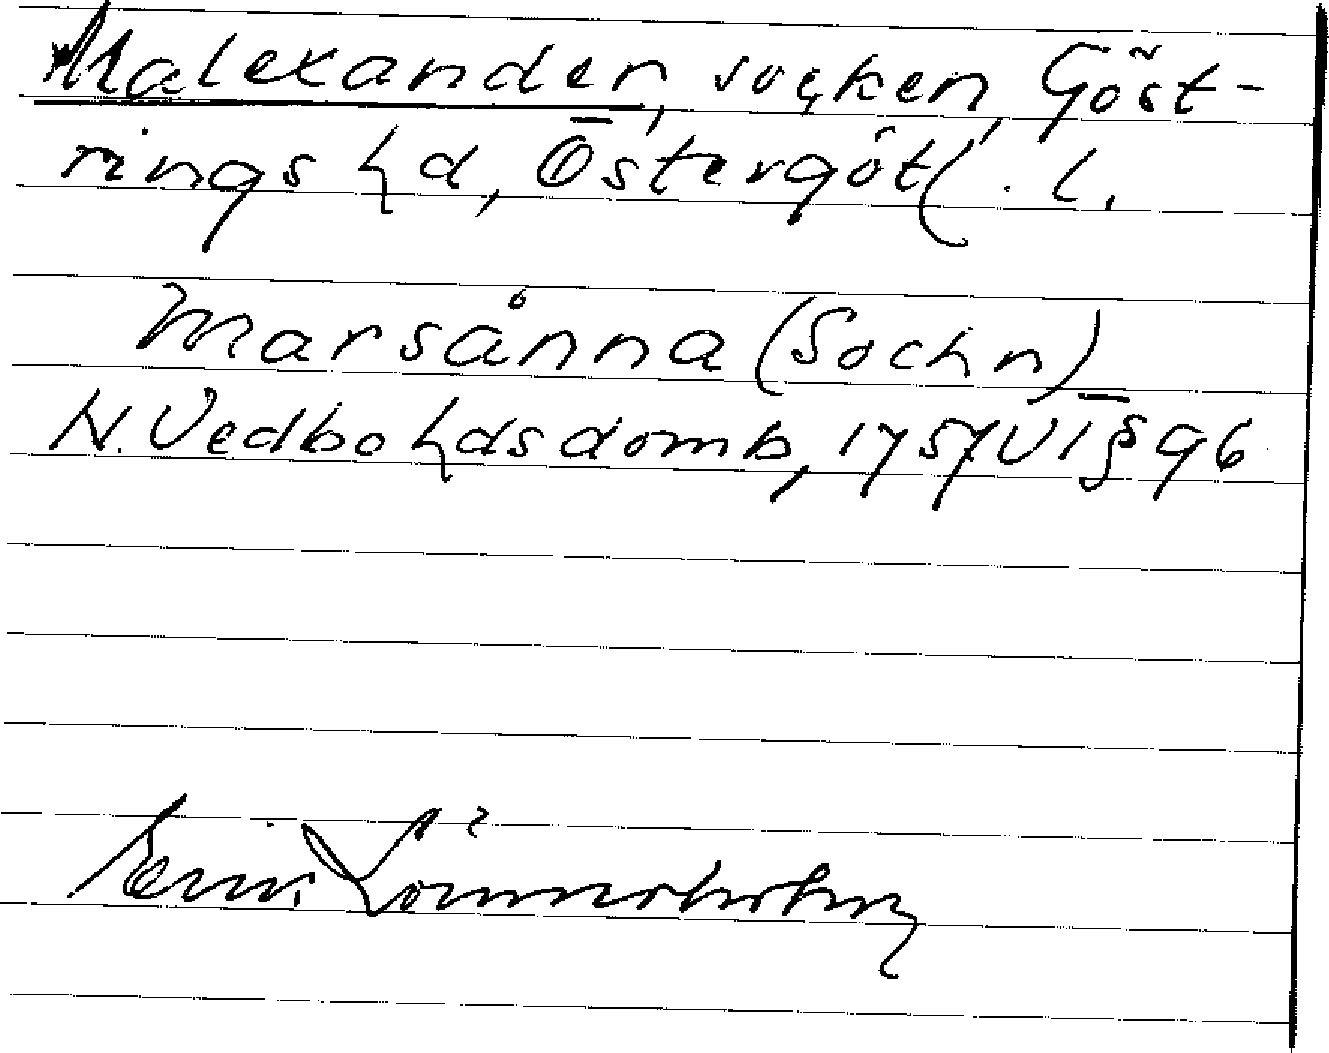 Malexander, socken, Göst-
rings hd, Östergötl. l.
Marsånna (Sochn)
N. Vedbo hds domb, 1757 VI § 96